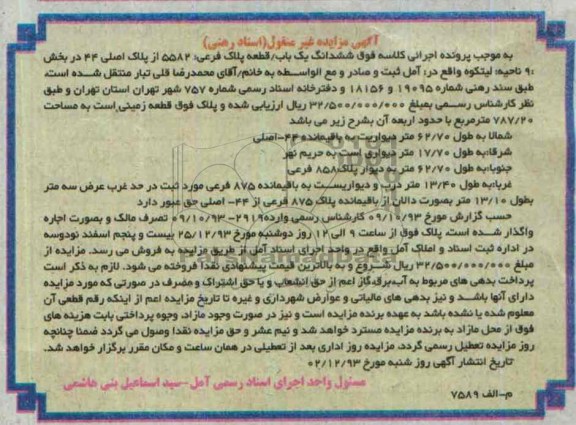 آگهی مزایده غیر منقول(اسناد رهنی)
به موجب پرونده اجرائی کلاسه فوق ششدانگ یک باب/قطعه پلاک فرعی: ۵۵۸۲ از پلاک اصلی ۴۴ در بخش
:۹ ناحیه: لیتکوه واقع در: آمل ثبت و صادر و مع الواسطه به خانم/آقای محمدرضا قلی تبار منتقل شده است.
طبق سند رهنی شماره ۱۹۰۹۵ و ۱۸۱۵۶ و دفترخانه اسناد رسمی شماره ۷۵۷ شهر تهران استان تهران و طبق
نظر کارشناس رسمی بمبلغ ۳۲/۵۰۰/۰۰۰/۰۰۰ ریال ارزیابی شده و پلاک فوق قطعه زمینی است به مساحت
۷۸۷/۲۰ مترمربع با حدود اربعه آن بشرح زیر می باشد
شمالا به طول ۶۲/۷۰ متر دیواریت به باقیمانده ۴۴-اصلی
شرقا:به طول ۱۷/۷۰ متر دیواری است به حریم نهر
جنوبا:به طول ۶۲/۷۰ متر به دیوار پلاک۸۵۸ فرعی
غربا:به طول ۱۳/۴۰ متر درب و دیواریست به باقیمانده ۸۷۵ فرعی مورد ثبت در حد غرب عرض سه متر
بطول ۱۳/۱۰ متر بصورت دالان از باقیمانده پلاک ۸۷۵ فرعی از ۴۴- اصلی حق عبور دارد
حسب گزارش مورخ ۰۹/۱۰/۹۳ کارشناس رسمی وارده۲۹۱۹- ۰۹/۱۰/۹۳ تصرف مالک و بصورت اجاره
واگذار شده است. پلاک فوق از ساعت ۹ الی ۱۲ روز دوشنبه مورخ ۲۵/۱۲/۹۳ بیست و پنجم اسفند نودوسه
در اداره ثبت اسناد و املاک آمل واقع در واحد اجرای اسناد آمل از طریق مزایده به فروش می رسد. مزایده از
مبلغ ۳۲/۵۰۰/۰۰۰/۰۰۰ ریال شروع و به بالاترین قیمت پیشنهادی نقدا فروخته می شود. لازم به ذکر است
پرداخت بدهی های مربوط به آب،برق،گاز اعم از حق انشعاب و یا حق اشتراک و مصرف در صورتی که مورد مزایده
دارای آنها باشد و نیز بدهی های مالیاتی و عوارض شهرداری و غیره تا تاریخ مزایده اعم از اینکه رقم قطعی آن
معلوم شده یا نشده باشد به عهده برنده مزایده است و نیز در صورت وجود مازاد، وجوه پرداختی بابت هزینه های
فوق از محل مازاد به برنده مزایده مسترد خواهد شد و نیم عشر و حق مزایده نقدا وصول می گردد ضمنا چنانچه
روز مزایده تعطیل رسمی گردد، مزایده روز اداری بعد از تعطیلی در همان ساعت و مکان مقرر برگزار خواهد شد.
تاریخ انتشار آگهی روز شنبه مورخ ۰۲/۱۲/۹۳
مسئول واحد اجرای اسناد رسمی آمل -سید اسماعیل بنی هاشمی
م-الف ۷۵۸۹